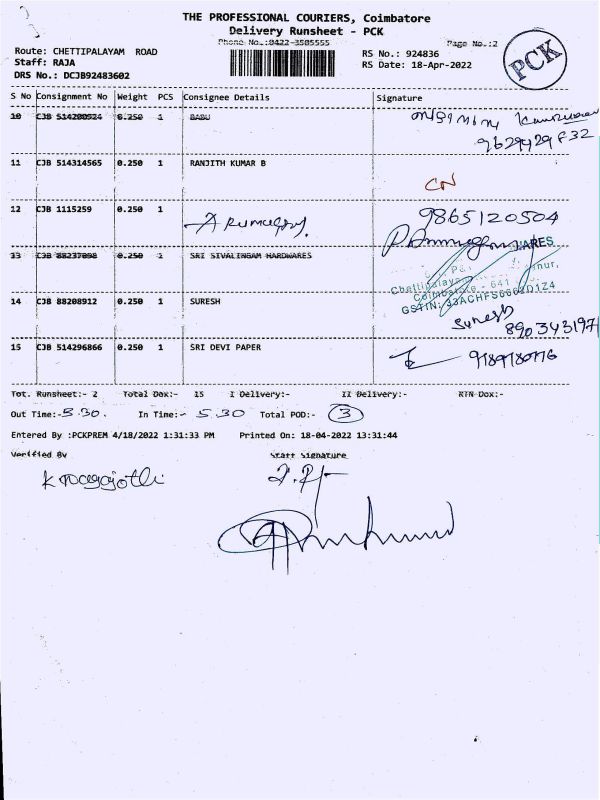 THE PROFESSIONAL COURIERS, Coimbatore
Delivery Runsheet - PCK
Phone No.:0422-3505555
Page No.:2
PCK
Route: CHETTIPALAYAM ROAD
Staff: RAJA
DRS No.: DCJB92483602
RS No.: 924836
RS Date: 18-Apr-2022
S No Consignment No Weight PCS Consignee Details Signature
10 CJB 514200524 0.250 1 BABU
9629429832
11 CJB 514314565 0.250 1 RANJITH KUMAR B
CN
12 CJB 1115259 0.250 1 Arumugam
9865120504
13 CJB 88237098 0.250 1 SRI SIVALINGAM HARDWARES
WARES
Coimbatore - 641
GSTIN: 33ACHFS6663D1Z4
14 CJB 88208912 0.250 1 SURESH Suresh
8903431971
15 CJB 514296866 0.250 1 SRI DEVI PAPER
Tot. Runsheet:- 2 Total Dox:- 15 I Delivery:- II Delivery:- RTN Dox:-
Out Time:- 5.30. In Time:- 5.30 Total POD:- 3
Entered By :PCKPREM 4/18/2022 1:31:33 PM Printed On: 18-04-2022 13:31:44
Verified By Staff Signature
K Nagajothi